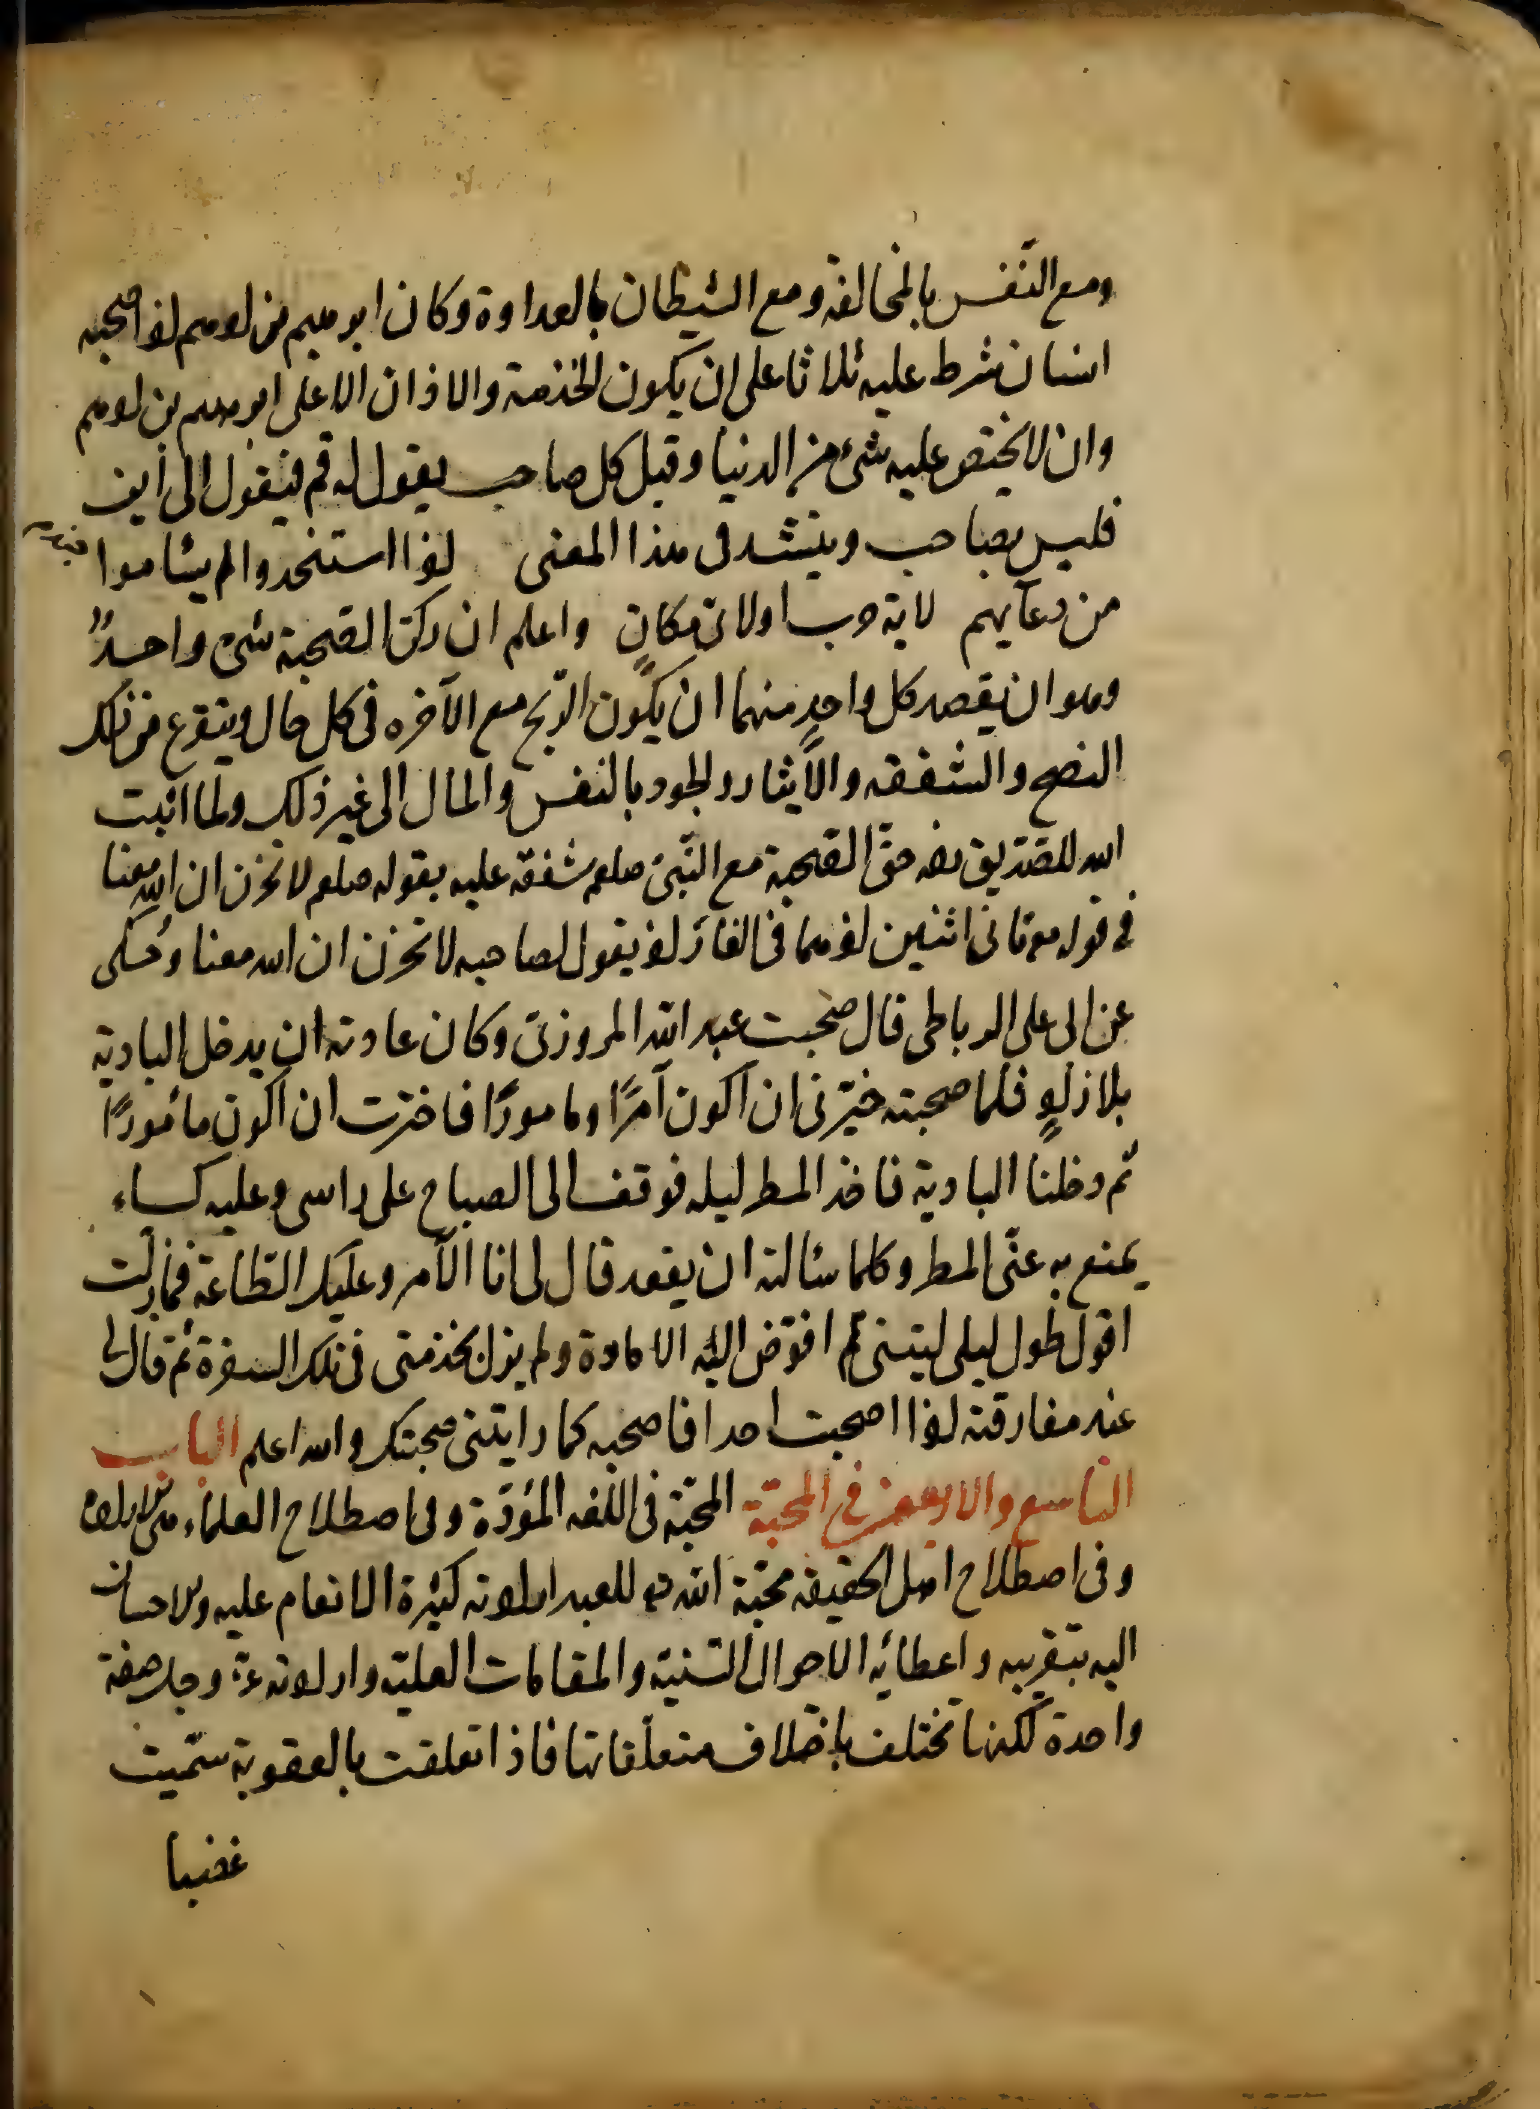 ومع النّفس بالمخالفة ومع الشيطان بالعداوة وكان ابرهيم بن ادهم اذا صحبه
انسان شرط عليه ثلاثا على ان يكون الخذمة والاذان الا على ابرهيم بن ادهم
وان لا يختص عليه شئ من الدنيا وقيل كل صاحب يقول له قم فيقول الى أين
فليس بصاحب وينشد فى هذا المعنى اذا استنجدوا لم يسئاموا
من دعآيهم لاية حرب او لاى مكانٍ واعلم ان ركن الصّحبة شئ واحدٌ
وهو ان يقصد كل واحدٍ منهما ان يكون الرّبح مع الآخره فى كل حال ويتفرع من ذلك
النصح والشفقه والأيثار والجود بالنفس والمال الى غير ذلك ولما اثبت
الله للصّديق رضه حقّ الصّحبة مع النّبىّ صلعم شفقة عليه بقوله صلعم لا تحزن ان الله معنا
فى قوله تع ثانى اثنين اذ هما فى الغار اذ يقول لصاحبه لا تحزن ان الله معنا وحُكى
عن ابى على الرباطى قال صحبت عبد الله المروزىّ وكان عادته ان يدخل البادية
بلا زادٍ فلما صحبته خيّرنى ان اكون آمرًا او مامورًا فاخترت ان اكون مأمورًا
ثم دخلنا البادية فاخذ المطر ليله فوقف الى الصباح على راسى وعليه كساء
يمنع به عنّى المطر وكلما سئالته ان يقعد قال لى انا الآمر وعليك الطّاعة فمازلت
اقول طول ليلى ليتنى لم افوّض اليه الامارة ولم يزل يخذمنى فى تلك السفرة ثم قال لى
عند مفارقته اذا اصحبت احدا فاصحبه كما رايتنى صحبتك والله اعلم الباب
التاسع والاربعون فى المحبّة المحبّة فى اللّغه المؤدّة وفى اصطلاح العلماء هى الارادة
وفى اصطلاح اهل الحقيقه محبّة الله تع للعبد ارادته كثيرة الانعام عليه والاحسان
اليه بتقريبه واعطائه الاحوال السّنية والمقامات العليّة وارادته عزّ وجل صفة
واحدة لكنها تختلف باختلاف متعلّقاتها فاذا تعلقت بالعقوبة سمّيت
غضبا